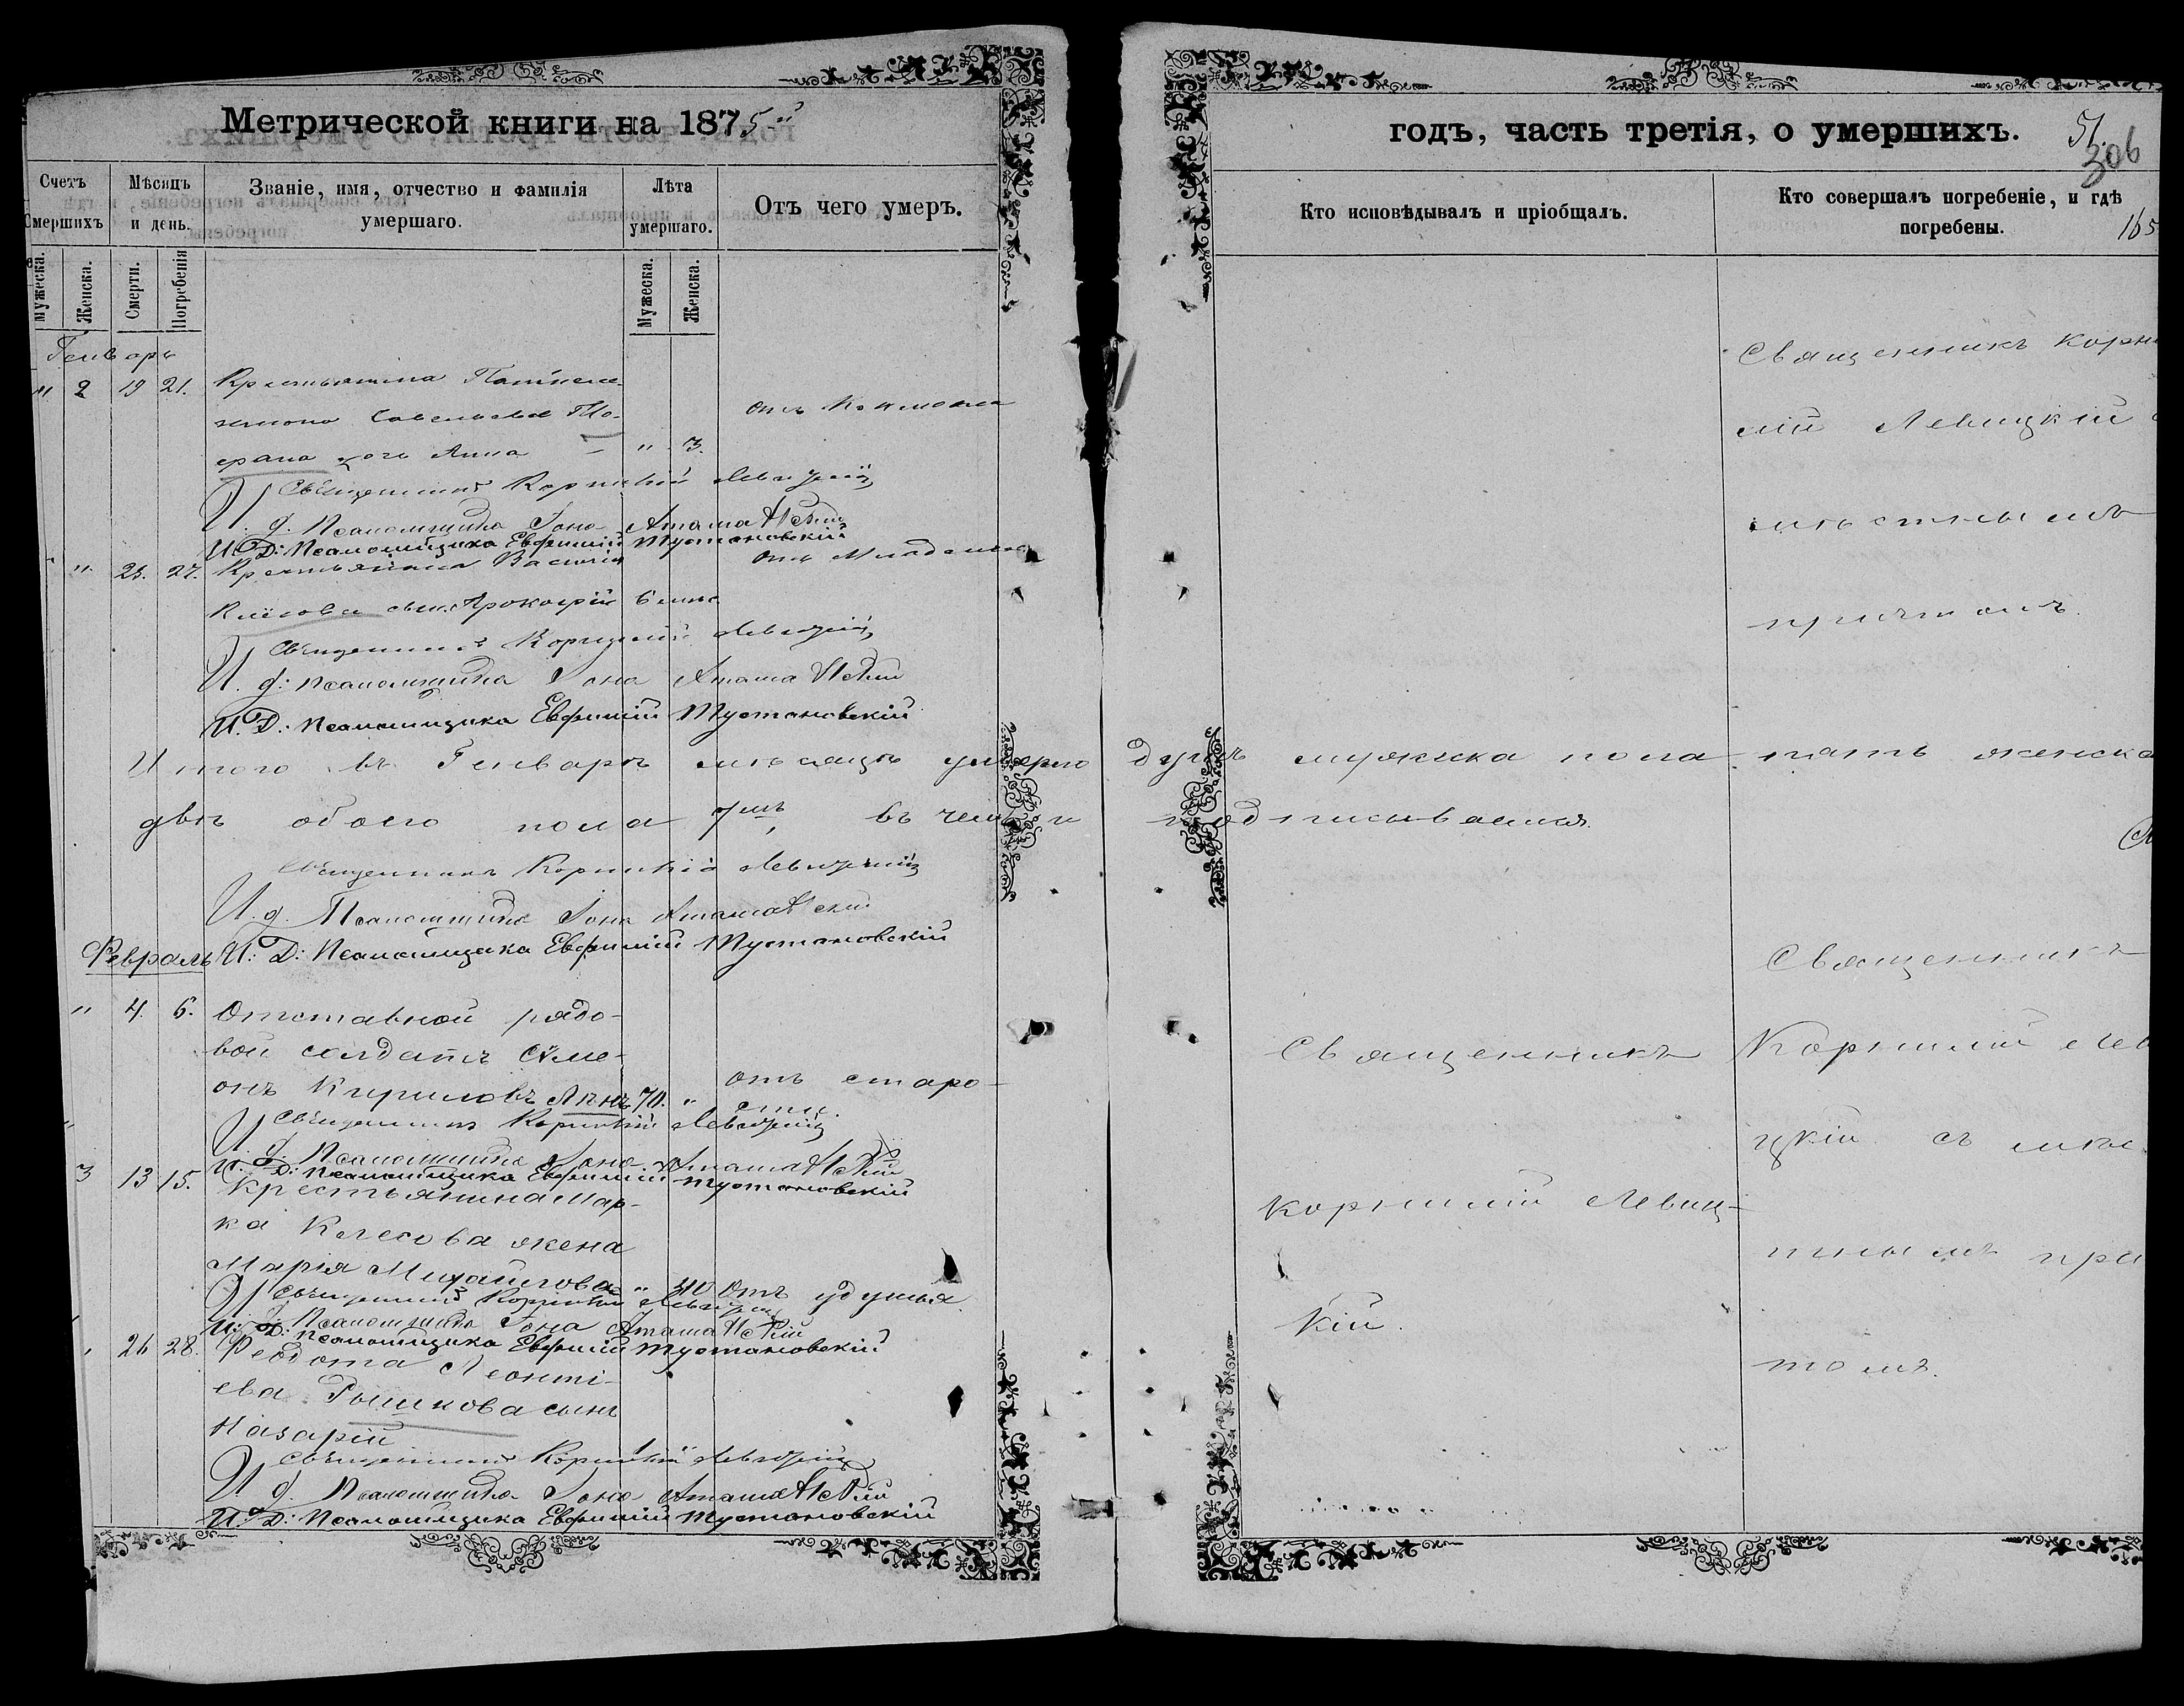 Метрической книги на 1875й
годъ, часть третія, о умершихъ.
51.
306
165
Счетъ Умершихъ
Мѣсяцъ и день.
Званіе, имя, отчество и фамилія умершаго.
Лѣта умершаго.
Отъ чего умеръ.
Кто исповѣдывалъ и пріобщалъ.
Кто совершалъ погребеніе, и гдѣ погребены.
Мужеска.
Женска.
Смерти.
Погребенія
Мужеска.
Женска.
Генварь
" 2 19 21. Крестьянина
Савельева
дочь Анна " 3.
Священникъ Корнилій Левицкій
И. д. Псаломщика Іона
И. Д: Псаломщика Евфимій Тустановскій
" 25. 27. Крестьянина Василія
сын. Прокофій 6 мѣс.
Священникъ Корнилій Левицкій
И. д: псаломщика Іона
И. Д: Псаломщика Евфимій Тустановскій
Итого въ Генварѣ мѣсяцѣ умерло душъ мужеска пола пять женска
двѣ обоего пола 7мъ, въ чемъ и подписываемся.
Священникъ Корнилій Левицкій
И. д. Псаломщика Іона
Февраль И: Д: Псаломщика Евфимій Тустановскій
" 4. 6. Отставной рядо-
вой солдатъ Симе-
онъ Кириловъ 70. " отъ старо-
сти.
Священникъ Корнилій Левицкій
И. д. Псаломщика Іона
И. Д: Псаломщика Евфимій Тустановскій
3 13 15. Крестьянина Мар-
ка Колесова жена
Марія Михайлова " 40 Отъ удушья
Священникъ Корнилій Левицкій
И. д. Псаломщика Іона
И: Д: Псаломщика Евфимій Тустановскій
26 28. Федота Леонті-
ева сынъ
Назарій
Священникъ Корнилій Левицкій
И д. Псаломщика Іона
И. Д: Псаломщика Евфимій Тустановскій
Священникъ
Корнилій Левиц-
кій.
Священникъ Корни
лій Левицкій с
мѣстнымъ
причтомъ.
Священникъ
Корнилій Лев
цкій съ мѣс
тнымъ при
томъ.